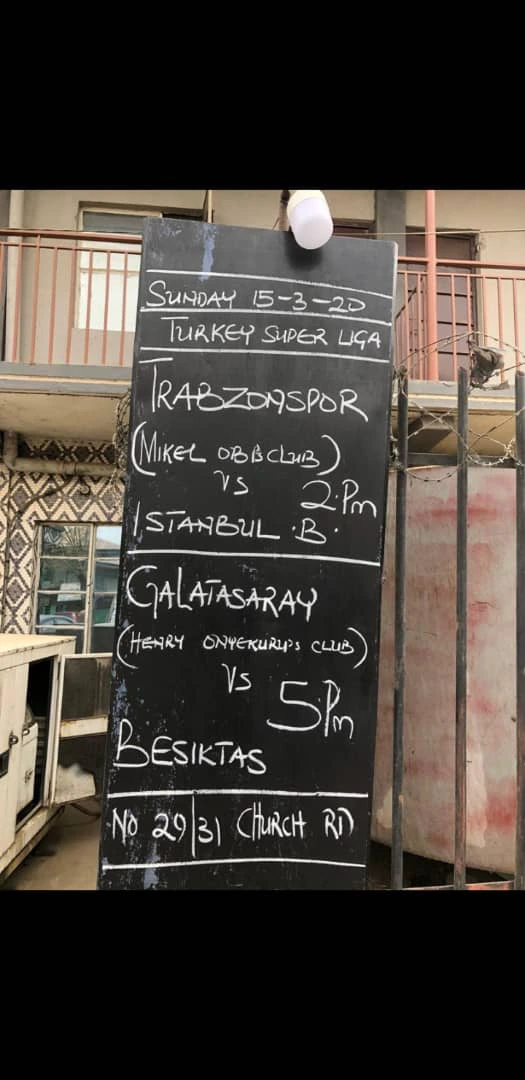 SUNDAY 15-3-20
TURKEY SUPER LIGA
TRABZONSPOR
(MIKEL OBB CLUB)
VS
2.Pm
ISTANBUL .B.
GALATASARAY
(HENRY ONYEKURU'S CLUB)
VS
5.Pm
BESIKTAS
NO 29/31 CHURCH RD